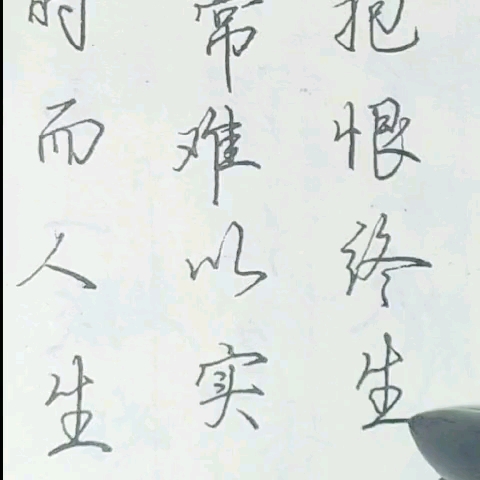 时而人生
常难以实
抱恨终生